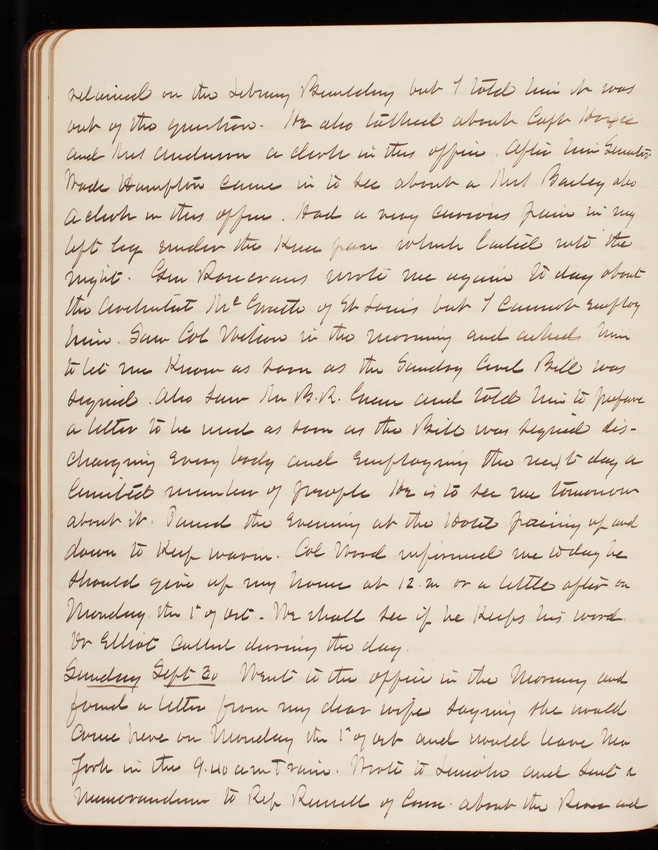 retained on the Library Building but I told him it was
out of the question. He also talked about Capt Hoxie
and Mrs Anderson a clerk in this office. After him Senator
Wade Hampton came in to see about a Mrs Bailey also
a clerk in this office. Had a very curious pain in my
left leg under the Knee pan which lasted into the
night. Gen Rosecrans wrote me again to day about
the Architect Mc Grath of St Louis but I cannot employ
him. Saw Col Wilson in the morning and asked him
to let me Know as soon as the Sundry Civil Bill was
signed. Also saw Mr B.R. Green and told him to prepare
a letter to be used as soon as the Bill was signed dis-
charging every body and employing the next day a
limited number of people He is to see me tomorrow
about it. Passed the Evening at the Hotel pacing up and
down to Keep warm. Col Wood informed me to day he
should give up my house at 12. m or a little after on
Monday the 1st of Oct. We shall see if he Keeps his word.
Dr Elliot called during the day.
Sunday Sept 30 Went to the office in the Morning and
found a letter from my dear wife saying she would
come here on Monday the 1st of Oct and would leave New
York in the 9.40 am Train. Wrote to Lincoln and sent a
Memorandum to Rep Russell of Conn. about the River and